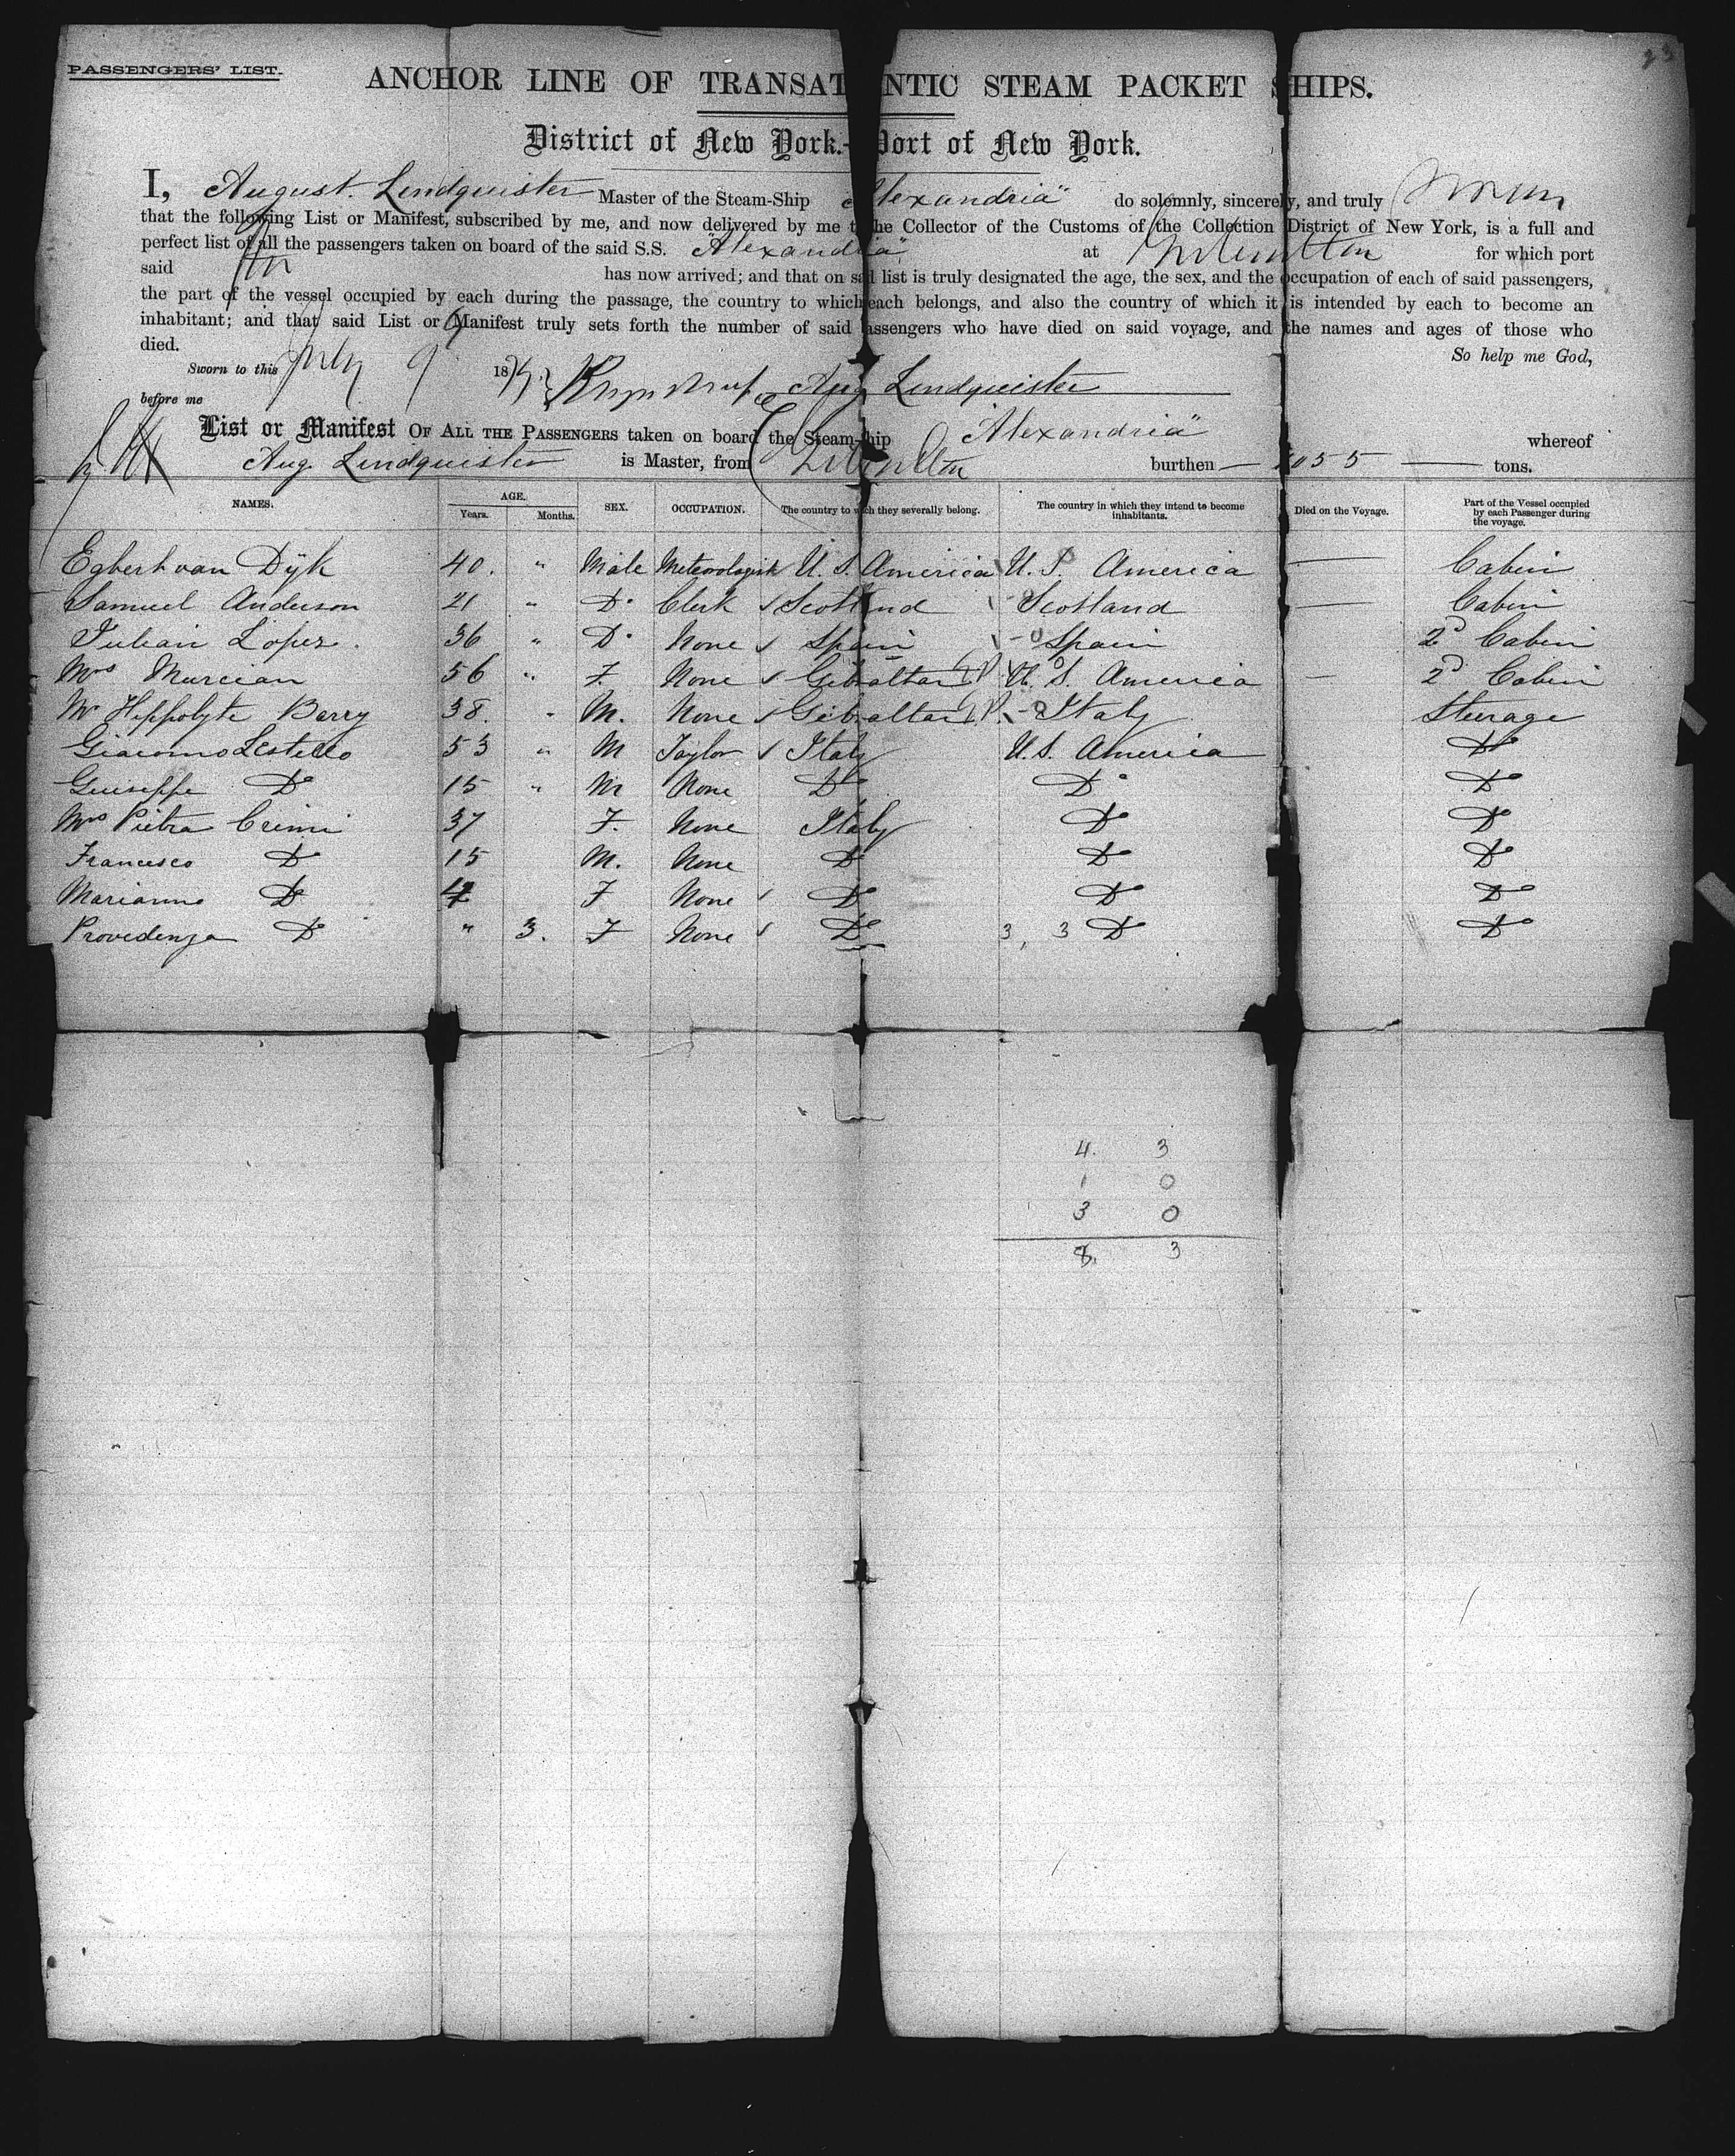 23
PASSENGERS' LIST.
ANCHOR LINE OF TRANSAT NTIC STEAM PACKET SHIPS.
District of New York.- Port of New York.
I, August. Lindquister Master of the Steam-Ship "Alexandria" do solemnly, sincerely, and truly
that the following List or Manifest, subscribed by me, and now delivered by me to the Collector of the Customs of the Collection District of New York, is a full and
perfect list of all the passengers taken on board of the said S.S. "Alexandria" at for which port
said has now arrived; and that on said list is truly designated the age, the sex, and the occupation of each of said passengers,
the part of the vessel occupied by each during the passage, the country to which each belongs, and also the country of which it is intended by each to become an
inhabitant; and that said List or Manifest truly sets forth the number of said passengers who have died on said voyage, and the names and ages of those who
died. So help me God,
Sworn to this July 9 187 Aug Lindquister
before me
List or Manifest OF ALL THE PASSENGERS taken on board the Steam-ship "Alexandria" whereof
Aug. Lindquister is Master, from burthen 055 tons.
NAMES. AGE. Years. Months. SEX. OCCUPATION. The country to which they severally belong. The country in which they intend to become inhabitants. Died on the Voyage. Part of the Vessel occupied by each Passenger during the voyage.
Egbert van Dÿk 40. " Male Meteorologist U. S. America U. S. America — Cabin
Samuel Anderson 21 " Do Clerk Scotland Scotland — Cabin
Julian Lopez. 36 " Do None Spain Spain 2d Cabin
Mrs Murcian 56 " F. None Gibraltar U. S. America — 2d Cabin
Mr Hippolyte Barry 38. " M. None Gibraltar Italy Steerage
Giacomo Lestello 53 " M Taylor Italy U.S. America Do
Guiseppe Do 15 " M None Do Do Do
Mrs Pietra Crimi 37 F. None Italy Do Do
Francesco Do 15 M. None Do Do Do
Marianna Do F None Do Do Do
Providenza Do " 3. F None Do 3, 3 Do Do
4. 3
1 0
3 0
8. 3